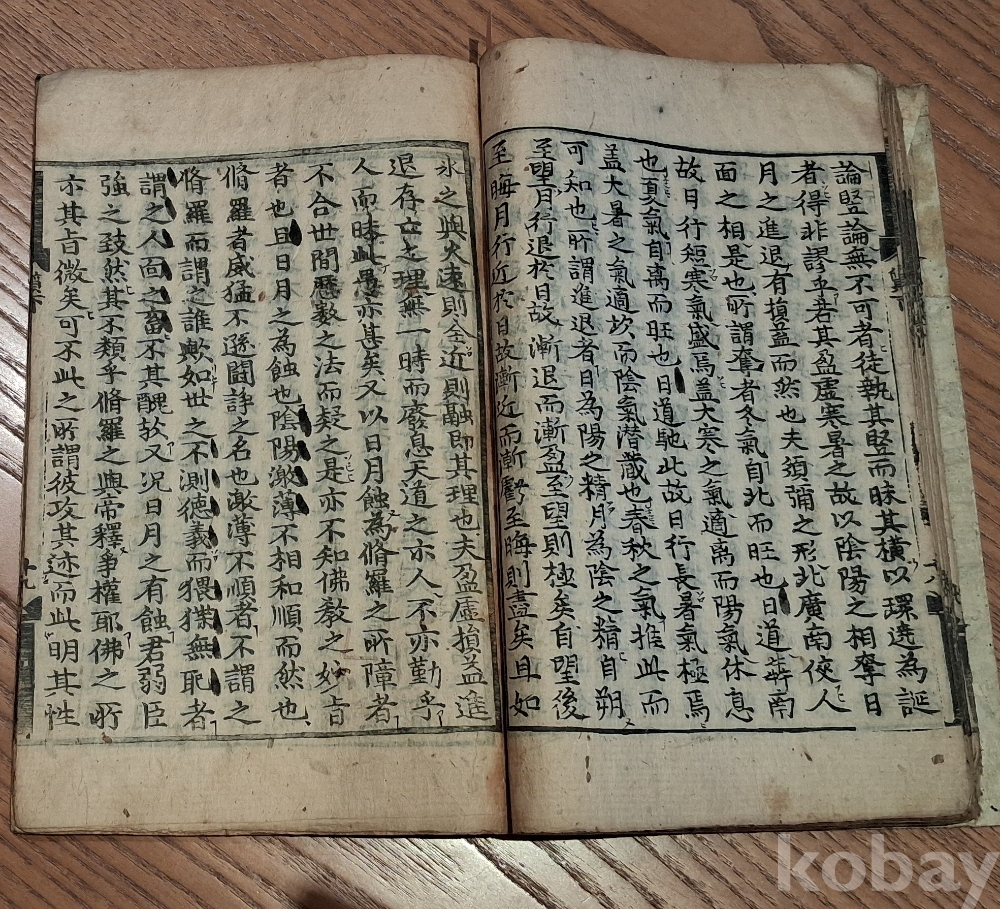 論竪論無不可者徒執其竪而昧其橫以環遶為誕
者得非謬乎若其盈虛寒暑之故以陰陽之相奪日
月之進退有損益而然也夫須彌之形北廣南俠人
面之相是也所謂奪者冬氣自北而旺也日道犇南
故日行短寒氣盛焉盖大寒之氣適离而陽氣休息
也夏氣自离而旺也日道馳北故日行長暑氣極焉
盖大暑之氣適坎而陰氣潜藏也春秋之氣推此而
可知也所謂進退者日為陽之精月為陰之精自朔
至望日行退於日故漸退而漸盈至望則極矣自望後
至晦月行近於日故漸近而漸虧至晦則盡矣且如
氷之與火遠則全近則融即其理也夫盈虛損益進
退存亡之理無一時而廢息天道之亦人不亦勤乎
人而昧此愚亦甚矣又以日月蝕為脩羅之所障者
不合世間曆数之法而疑之是亦不知佛教之妙旨
者也且日月之為蝕也陰陽激薄不相和順而然也
脩羅者威猛不遜鬪諍之名也激薄不順者不謂之
脩羅而謂之誰歟如世之不測德義而猥褋無恥者
謂之人面之畜不其醜欤又况日月之有蝕君弱臣
強之致然其不類乎脩羅之與帝釋争權耶佛之所
亦其旨微矣可不此之所謂彼攻其迹而此明其性
十八
十九
kobay